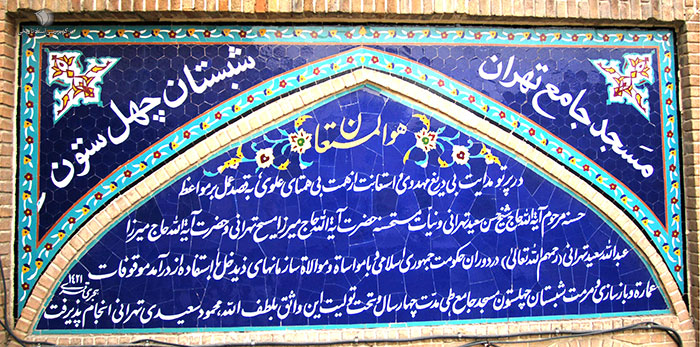 مسجد جامع تهران
شبستان چهل ستون
هو المستعان
در پرتو هدایت بی دریغ مهدی و استعانت از همت بی همتای علوی به قصد عمل بر مواعظ
حسنه مرحوم آیة الله حاج شیخ حسن سعید تهرانی و نیات مستحسنه حضرت آیة الله حاج میرزا مسیح تهرانی و حضرت آیة الله حاج میرزا
عبدالله سعید تهرانی (رحمهم الله تعالی) در دوران حکومت جمهوری اسلامی و با مواساة و موالاة سازمانهای ذیدخل با استفاده از درآمد موقوفات
عمارة و بازسازی و مرمت شبستان چهلستون مسجد جامع طی مدت چهار سال و تحت تولیت این واثق بلطف الله، محمود سعیدی تهرانی انجام پذیرفت
۱۴۲۱ هجری قمری